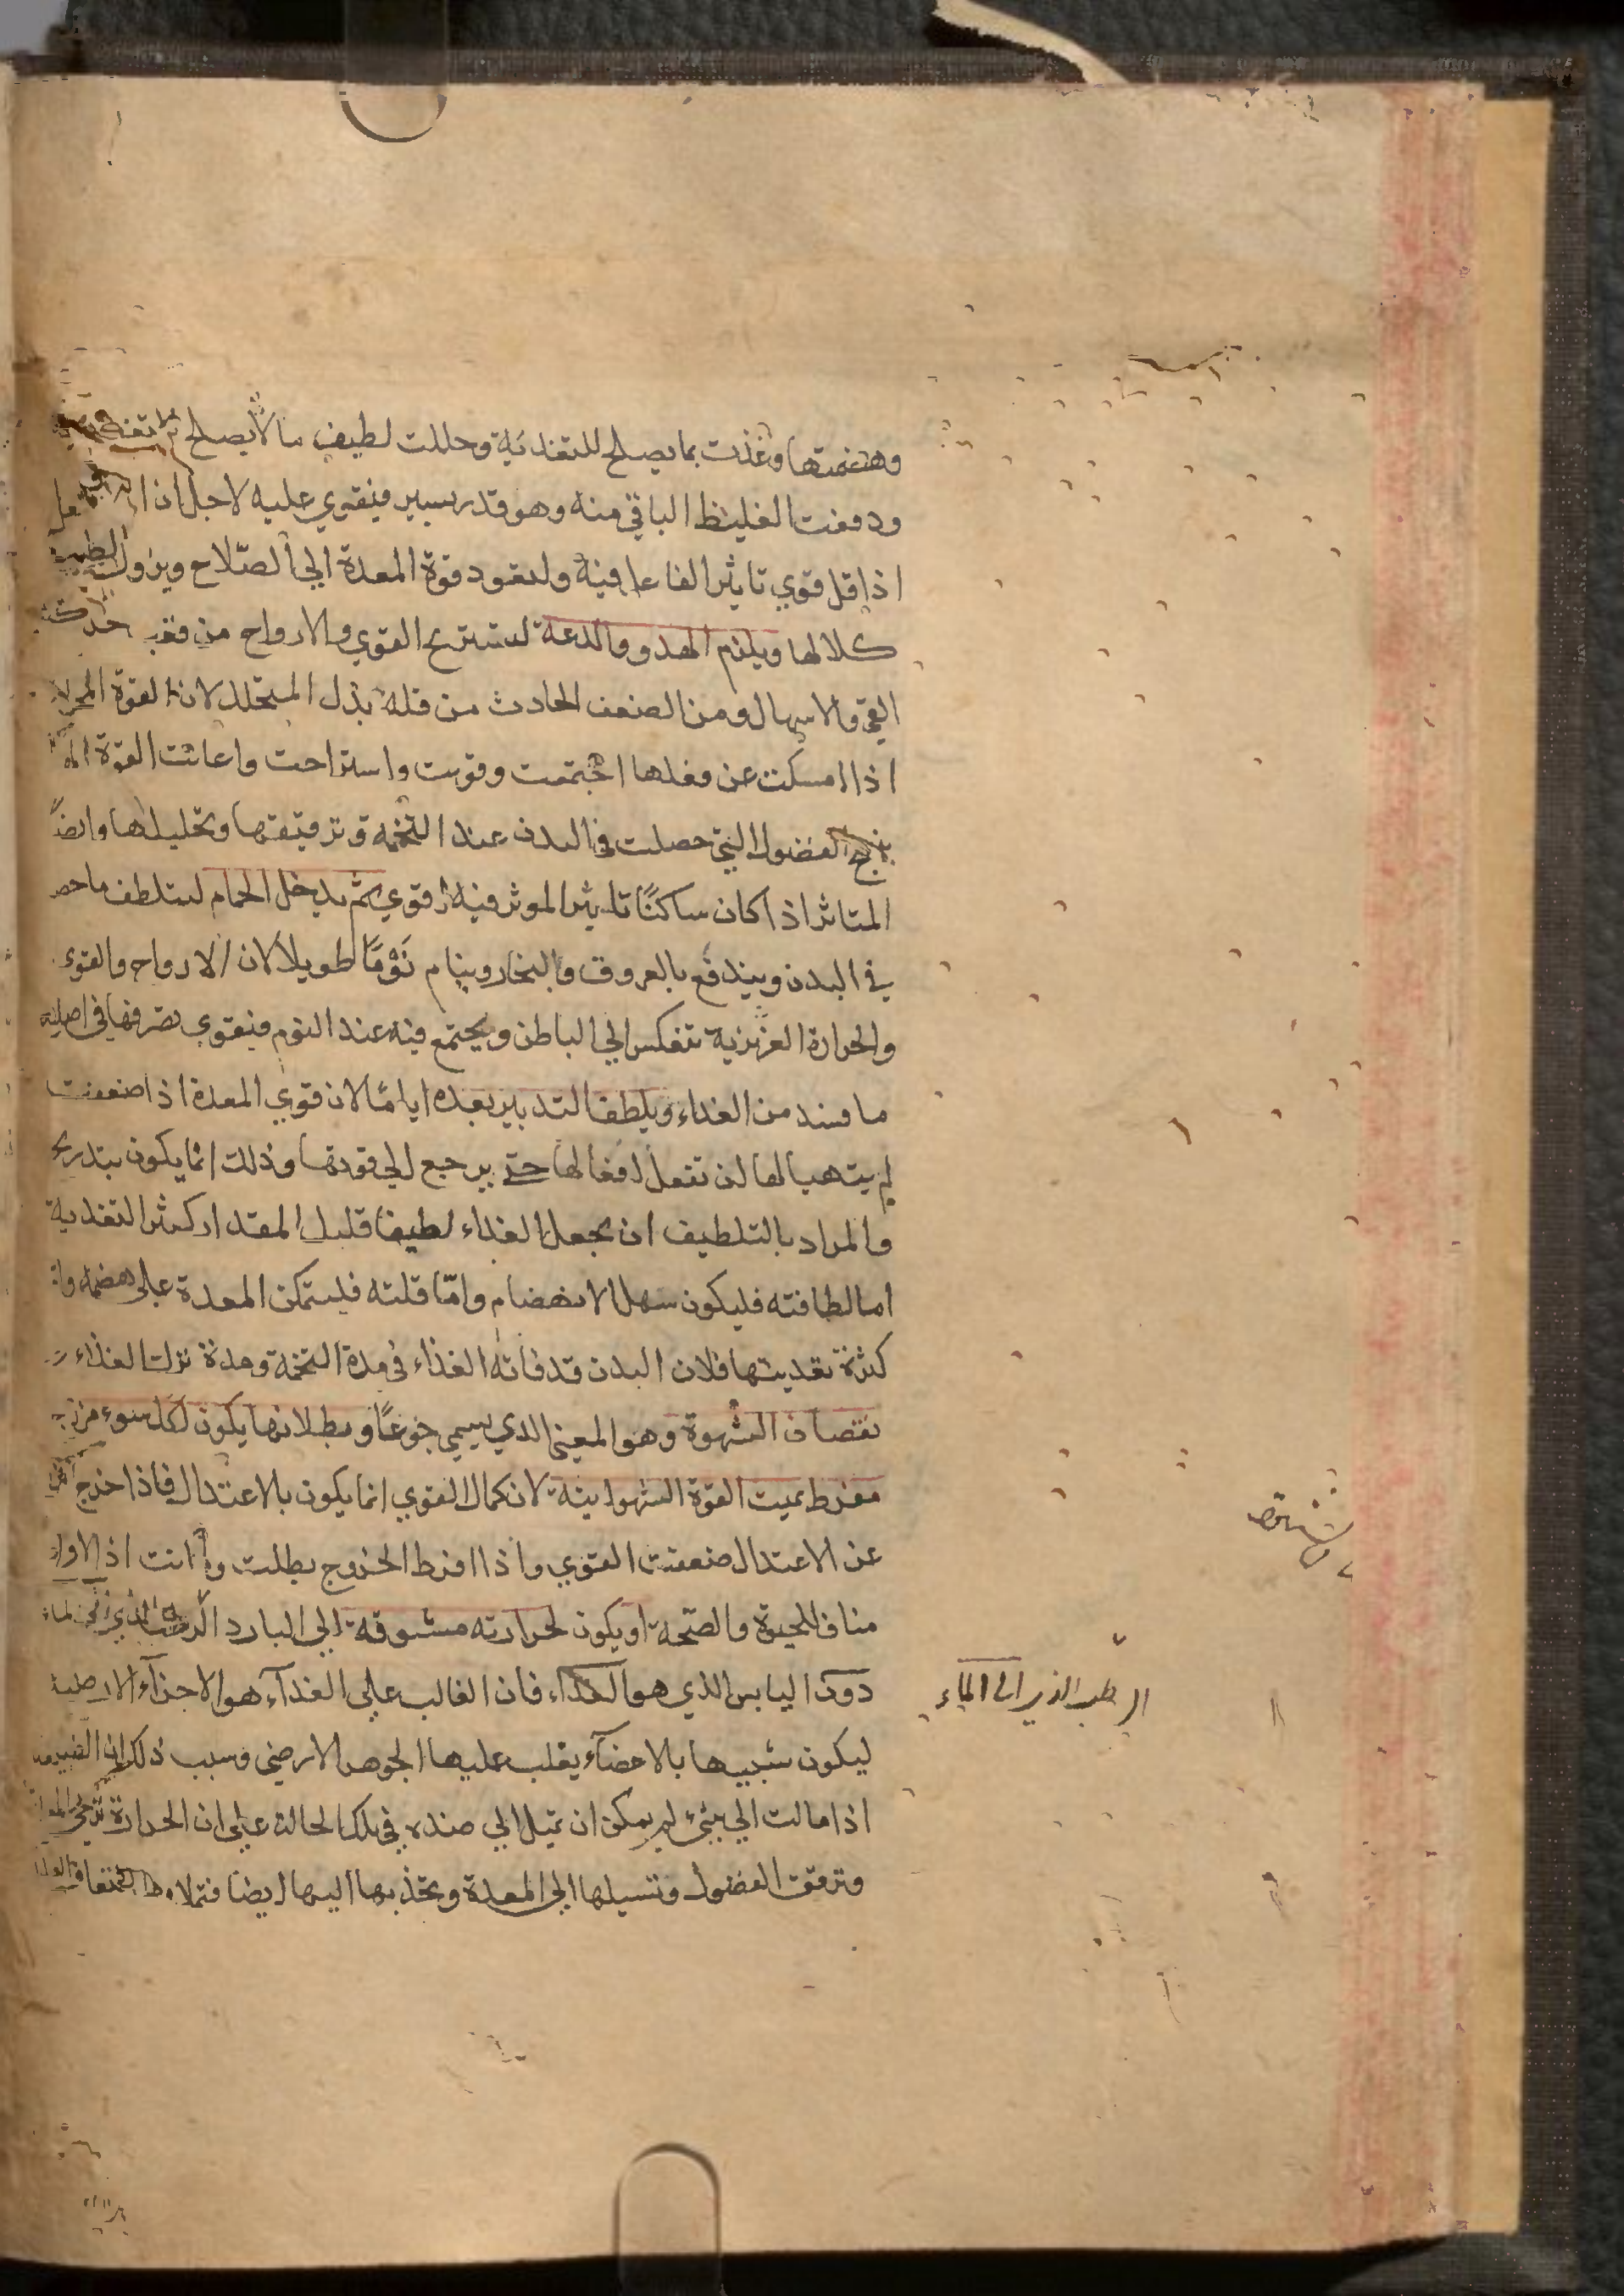 وهضمتها وغذت بما يصلح للتغذية وحللت لطيف ما لا يصلح
ودفعت الغليظ الباقي منه وهو قدر يسير فيقوي عليه لاجل ان
اذا قل قوي تاثير الفاعل فيه ولتعود قوة المعدة الي الصّلاح ويزول
كلالها ويلزم الهدو والدعة لتستريح القوي والارواح من تعب حركت
القي والاسهال ومن الضعف الحادث من قلة بدل المتحلل لان القوة المحركة
اذا امسكت عن فعلها اجتمعت وقويت واستراحت واعانت القوة
الفضول التي حصلت في البدن عند التخمة وترقيقها وتحليلها وايضاً
المتاثر اذا كان ساكنًا تاثير الموثر فيه اقوي ثم يدخل الحمام ليتلطف ما حصل
في البدن ويندفع بالعروق والبخار وينام نَوْمًا طويلا لان الارواح والقوي
والحرارة الغريزية تنعكس الي الباطن ويجتمع فيه عند النوم فيقوي تصرفها في اصلاح
ما فسد من الغداء ويلطف التدبير بعده اياما لان قوي المعدة اذا ضعفت
لم يتهيا لها ان تفعل افعالها حتي يرجع الي قوتها وذلك انما يكون بتدريج
والمراد بالتلطيف ان يجعل الغداء لطيفا قليل المقدار كثير التغدية
اما لطافته فليكون سهل الانهضام وامّا قلته فليتمكن المعدة علي هضمه واما
كثرة تغديتها فلان البدن قد فاته الغذاء في مدة التخمة ومدة ترك الغذاء
نقصان الشهوة وهو المعني الدي يسمي جوعًا وبطلانها يكون لكل سوء مزاج
مفرط يميت القوة الشهوانية لان كمال القوي انما يكون بالاعتدال فاذا خرج
عن الاعتدال ضعفت القوي واذا افرط الخروج بطلت وماتت اذ الافراط
مناف للحيوة والصّحة او يكون لحرارته مشوقة الي البارد الرطب الذي
دون اليابس الذي هو الغداء فان الغالب علي الغدآء هو الاجزآء الارضية
ليكون شبيها بالاعضآء يغلب عليها الجوهر الارضي وسبب ذلك ان الطبيعة
اذا مالت الي شيء لم يمكن ان تميل الي ضده في تلك الحالة علي ان الحرارة ترخي المعدة
وترقق الفضول وتسيلها الي المعدة وتجذبها اليها ايضا فتملاها
الرطب الذي الي المآء